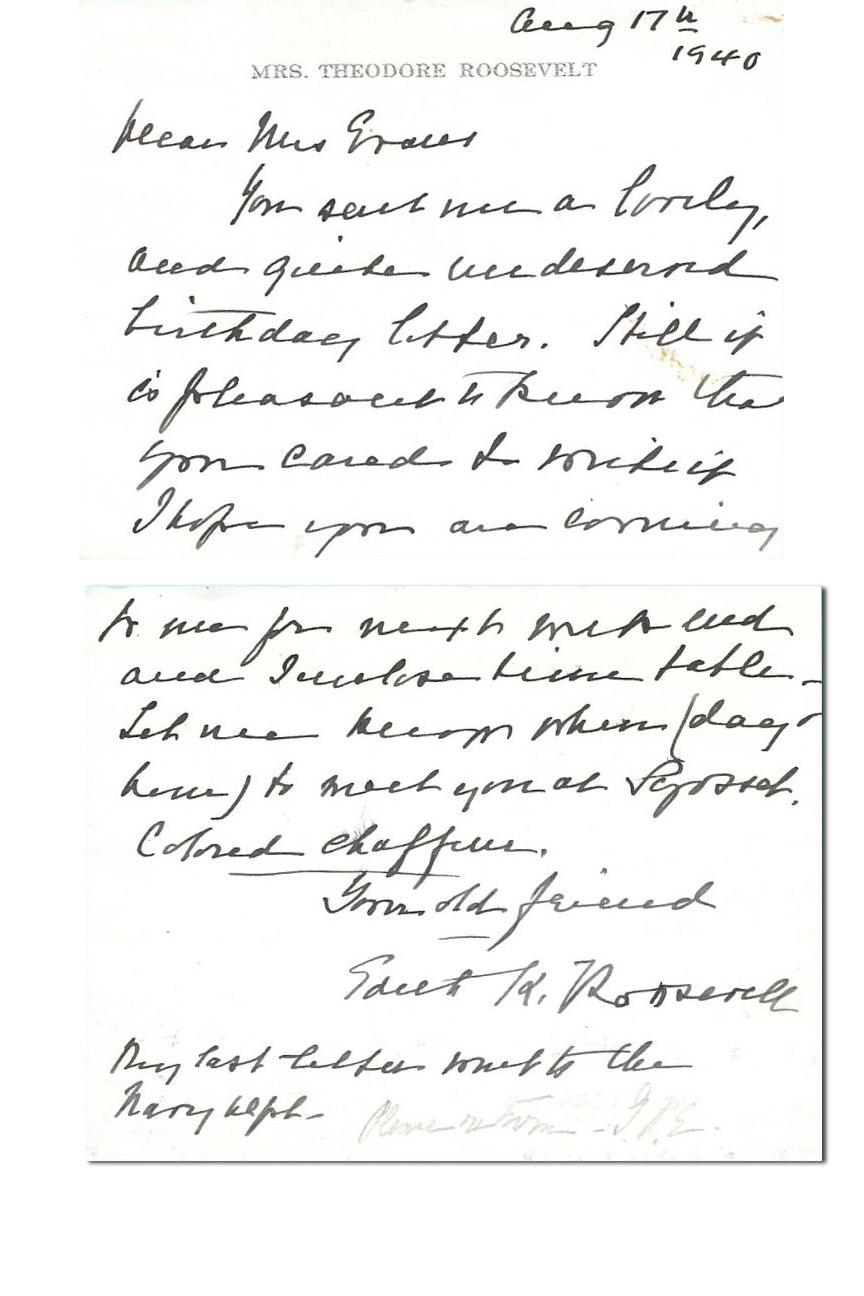 Aug 17th
1940
MRS. THEODORE ROOSEVELT
Dear Mrs Evans
You sent me a lovely,
and quite undeserved
birthday letter. Still it
is pleasant to know tha
you cared to write it
I hope you are coming
to me for next week end
and I inclose time table –
Let me know when (day &
hour) to meet you at Syosset.
Colored chaffeur.
Your old friend
Edith K. Roosevelt
My last letter went to the
Navy Dept –
Please return – J.P.E.